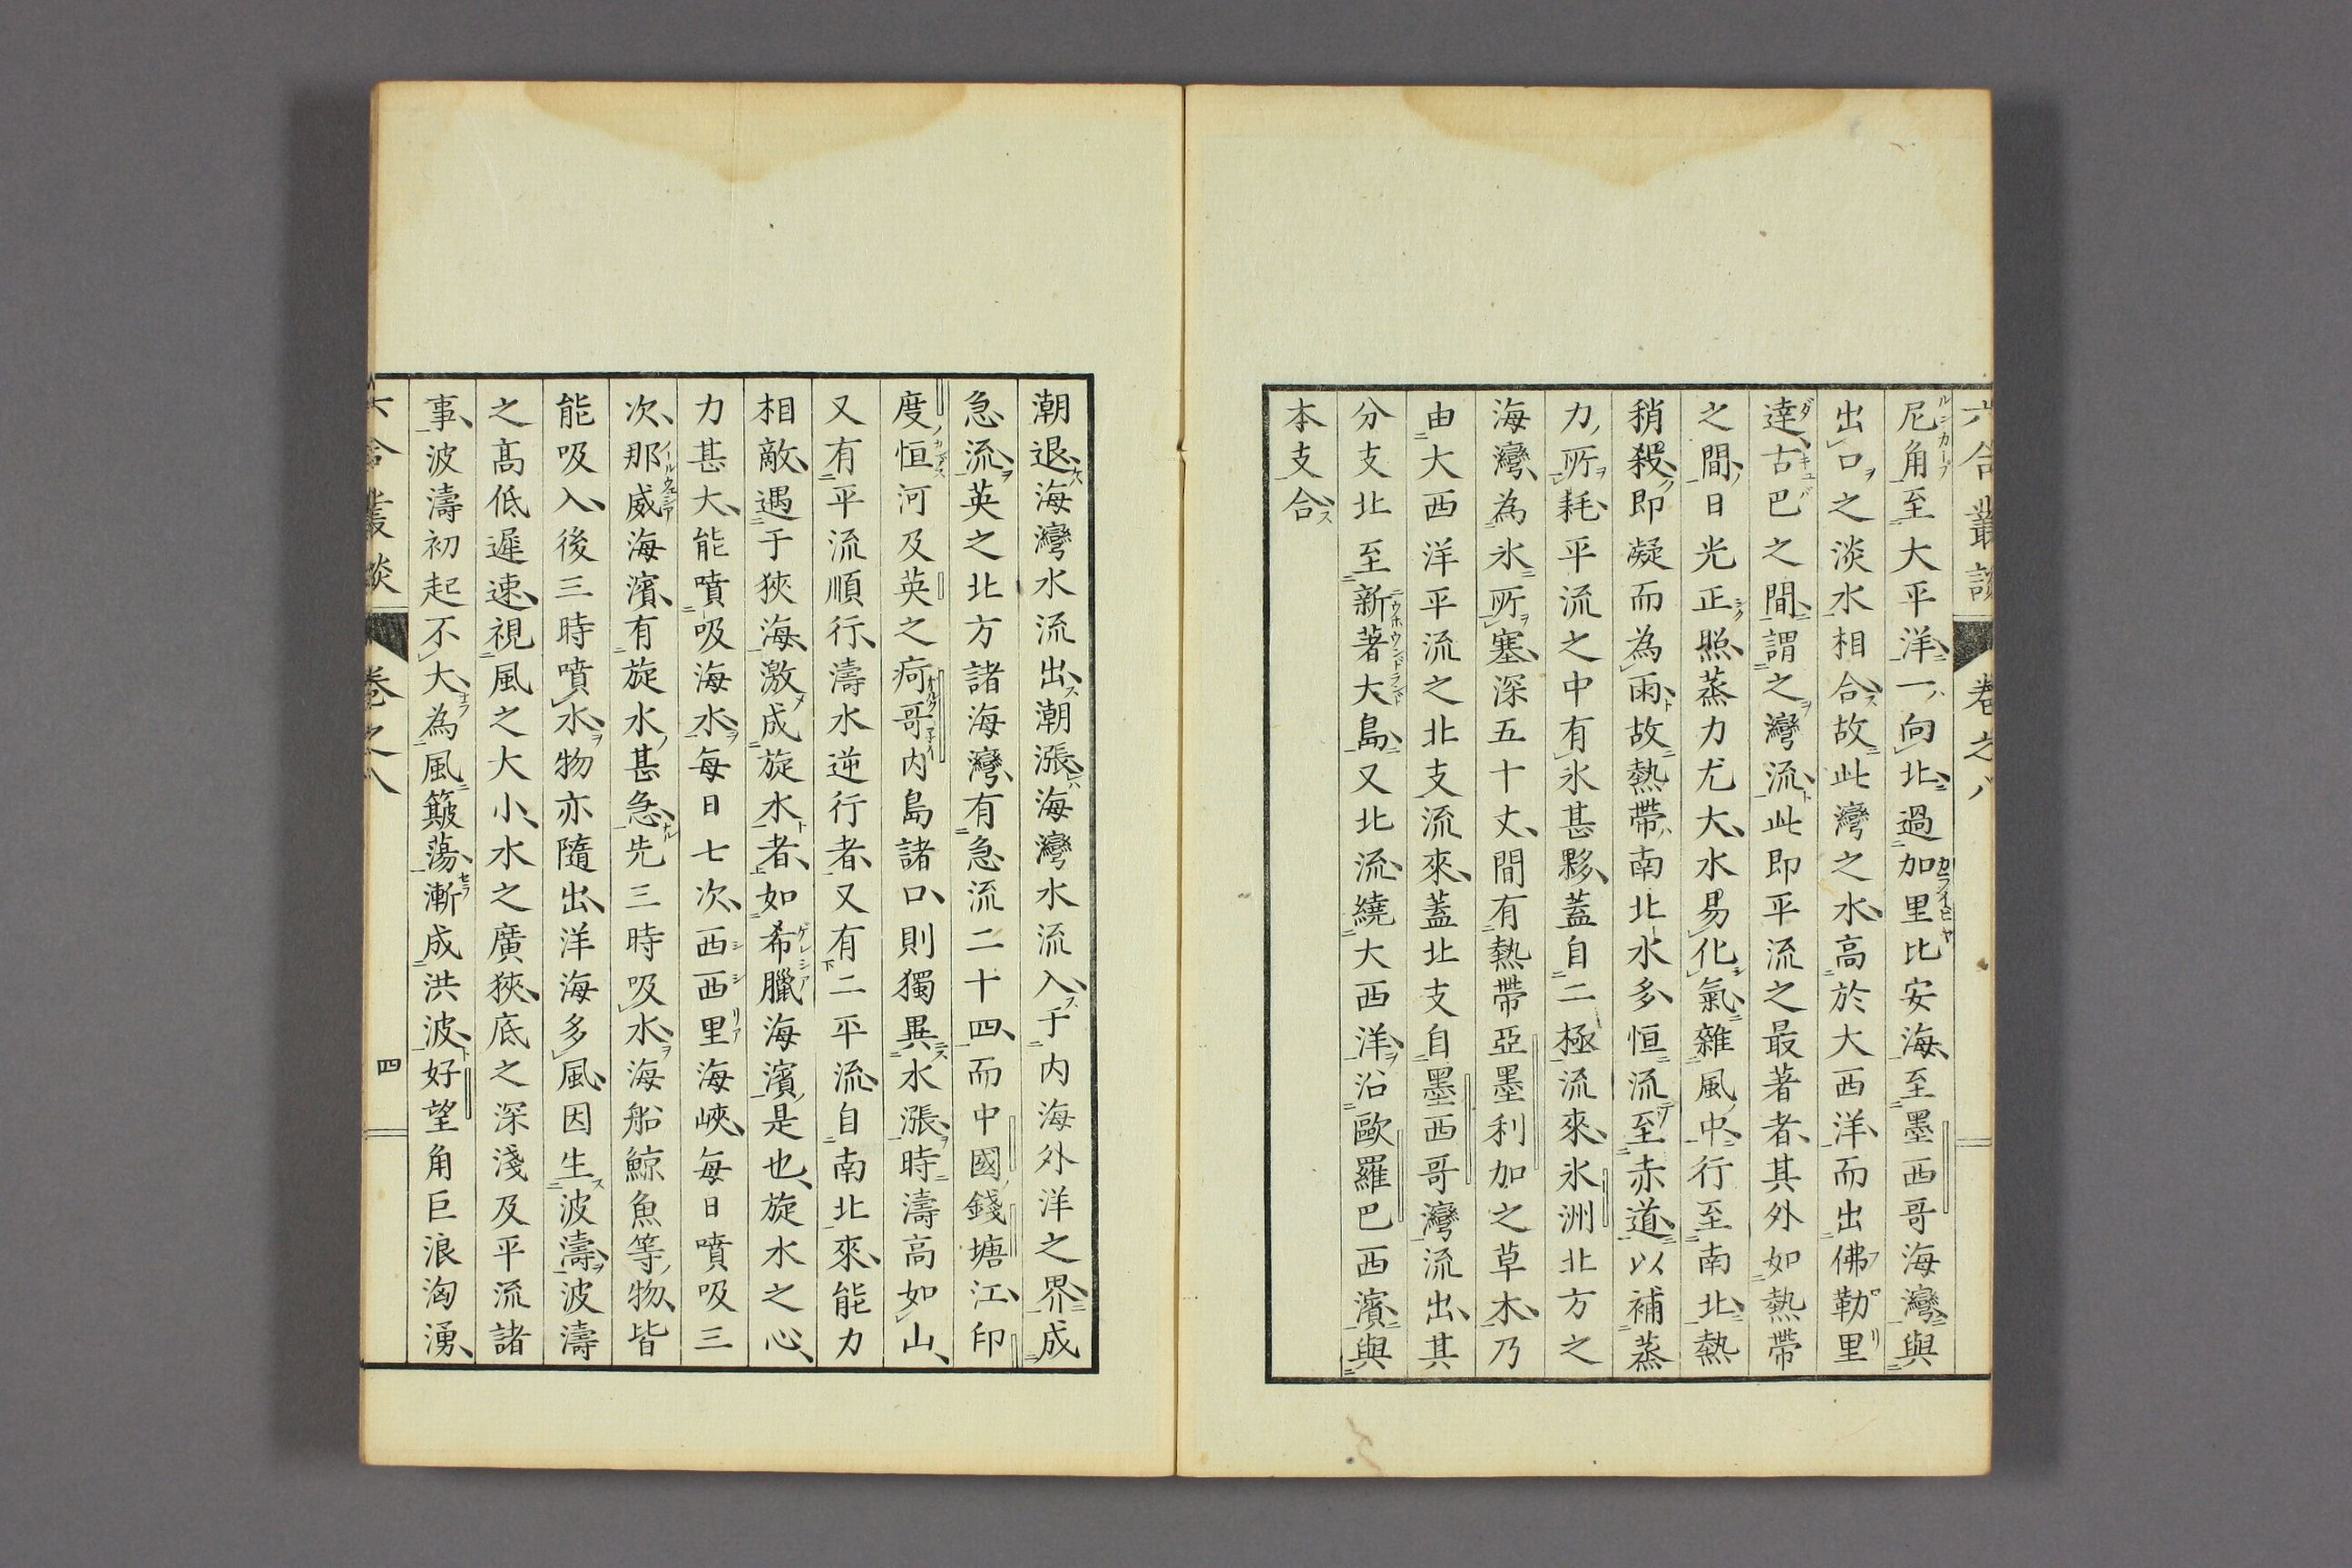 六合叢談 卷之八
尼角至大平洋一向北過加里比安海至墨西哥海灣與
出口之淡水相合故此灣之水高於大西洋而出佛勒里
達古巴之間謂之灣流此即平流之最著者其外如熱帶
之間日光正照蒸力尤大水易化氣雜風中行至南北熱
稍殺即凝而為雨故熱帶南北水多恒流至赤道以補蒸
力所耗平流之中有氷甚夥蓋自二極流來氷洲北方之
海灣為氷所塞深五十丈間有熱帶亞墨利加之草木乃
由大西洋平流之北支流來蓋北支自墨西哥灣流出其
分支北至新著大島又北流繞大西洋沿歐羅巴西濱與
本支合
潮退海灣水流出潮漲海灣水流入于内海外洋之界成
急流英之北方諸海灣有急流二十四而中國錢塘江印
度恒河及英之疴哥内島諸口則獨異水漲時濤高如山
又有平流順行濤水逆行者又有二平流自南北來能力
相敵遇于狹海激成旋水者如希臘海濱是也旋水之心
力甚大能噴吸海水每日七次西西里海峽每日噴吸三
次那威海濱有旋水甚急先三時吸水海船鯨魚等物皆
能吸入後三時噴水物亦隨出洋海多風因生波濤波濤
之高低遲速視風之大小水之廣狹底之深淺及平流諸
事波濤初起不大為風簸蕩漸成洪波好望角巨浪洶湧
六合叢談 卷之八 四